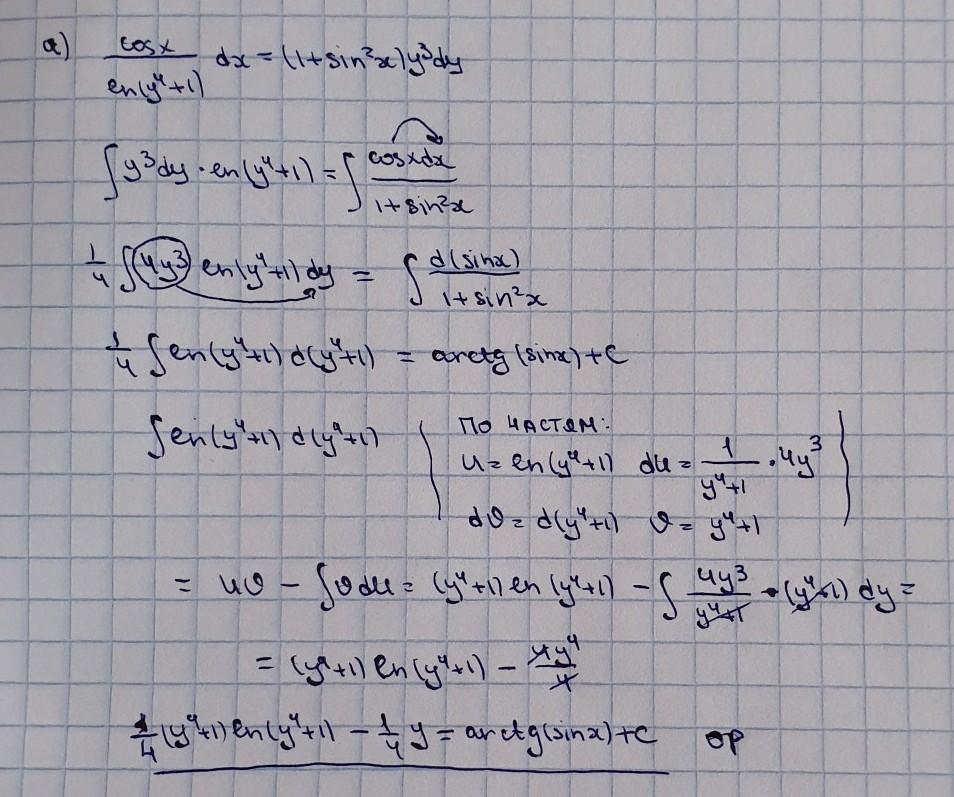 a) cosx/en(y⁴+1) dx = (1+sin²x)y³dy
∫y³dy · en(y⁴+1) = ∫ cosxdx/1+sin²x
1/4 ∫4y³ en(y⁴+1) dy = ∫ d(sinx)/1+sin²x
1/4 ∫en(y⁴+1) d(y⁴+1) = arctg(sinx)+C
∫en(y⁴+1) d(y⁴+1) | по частям:
u = en(y⁴+1) du = 1/y⁴+1 · 4y³
dv = d(y⁴+1) v = y⁴+1 |
= uv - ∫vdu = (y⁴+1) en (y⁴+1) - ∫ 4y³/y⁴+1 · (y⁴+1) dy =
= (y⁴+1) en(y⁴+1) - 4y⁴/4
1/4 (y⁴+1) en(y⁴+1) - 1/4 y = arctg(sinx)+C